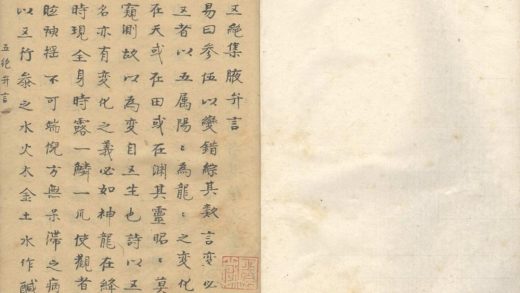 五絕集腋弁言
易曰參伍以變錯綜其數言變必
五者以五屬陽〻為龍〻之變化
在天或在田或在淵其靈昭〻莫
窺測故以為變自五生也詩以五
名亦有變化之義必如神龍在絳
時現全身時露一鱗一爪使觀者
眩瞬揺不可端倪方無呆滯之病
以五行叅之水火木金土水作鹹
五絕弁言